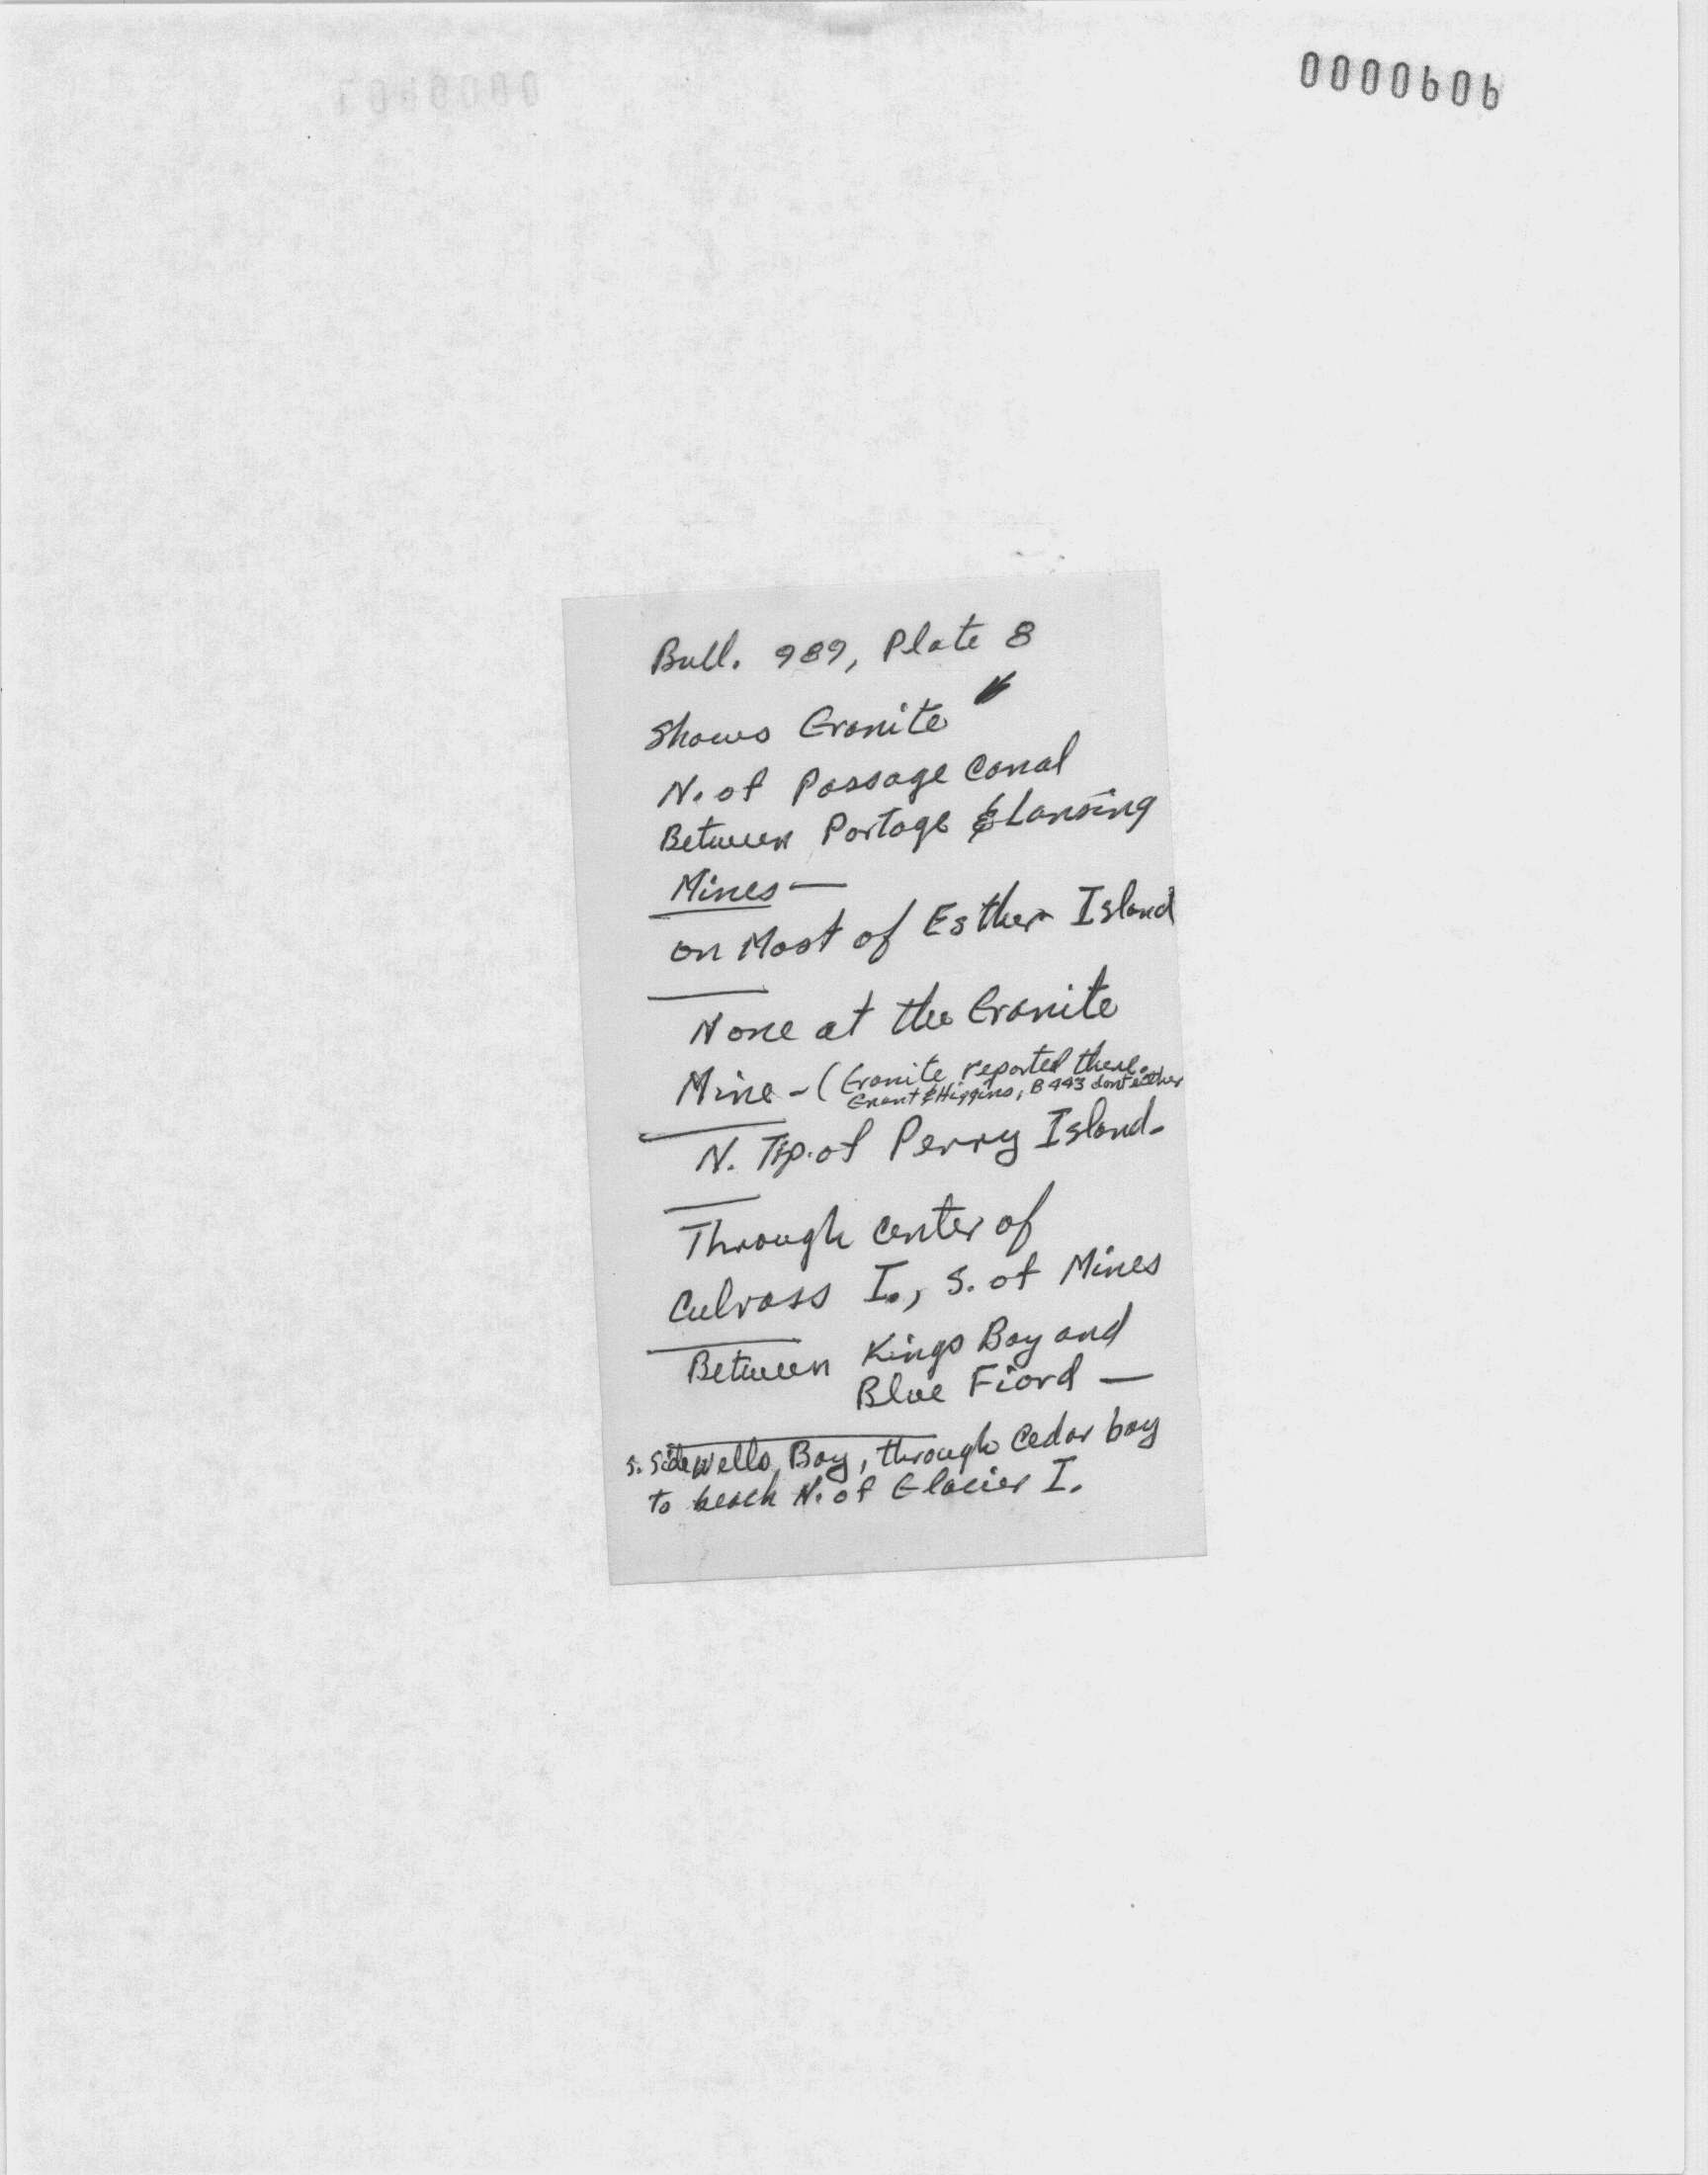 0000606
Bull. 989, Plate 8
Shows Granite
N. of Passage Canal
Between Portage & Lansing
Mines —
on Most of Esther Island
None at the Granite
Mine - (Granite reported there.
Grant & Higgins, B 443 dont either
N. Tip. of Perry Island.
Through center of
Culross I., S. of Mines
Between Kings Bay and
Blue Fiord —
S. Side Wells Bay, through Cedar bay
to beach N. of Glacier I.